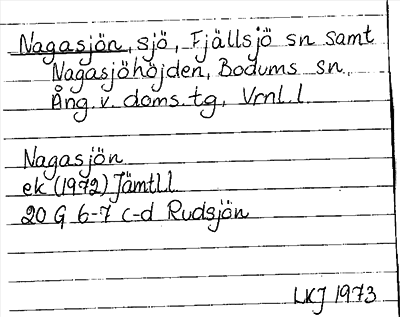 Nagasjön, sjö, Fjällsjö sn samt
Nagasjöhöjden, Bodums sn,
Ång. v. doms. tg, Vrnl. l
Nagasjön
ek (1972) Jämtl l
20 G 6-7 c-d Rudsjön
LKJ 1973